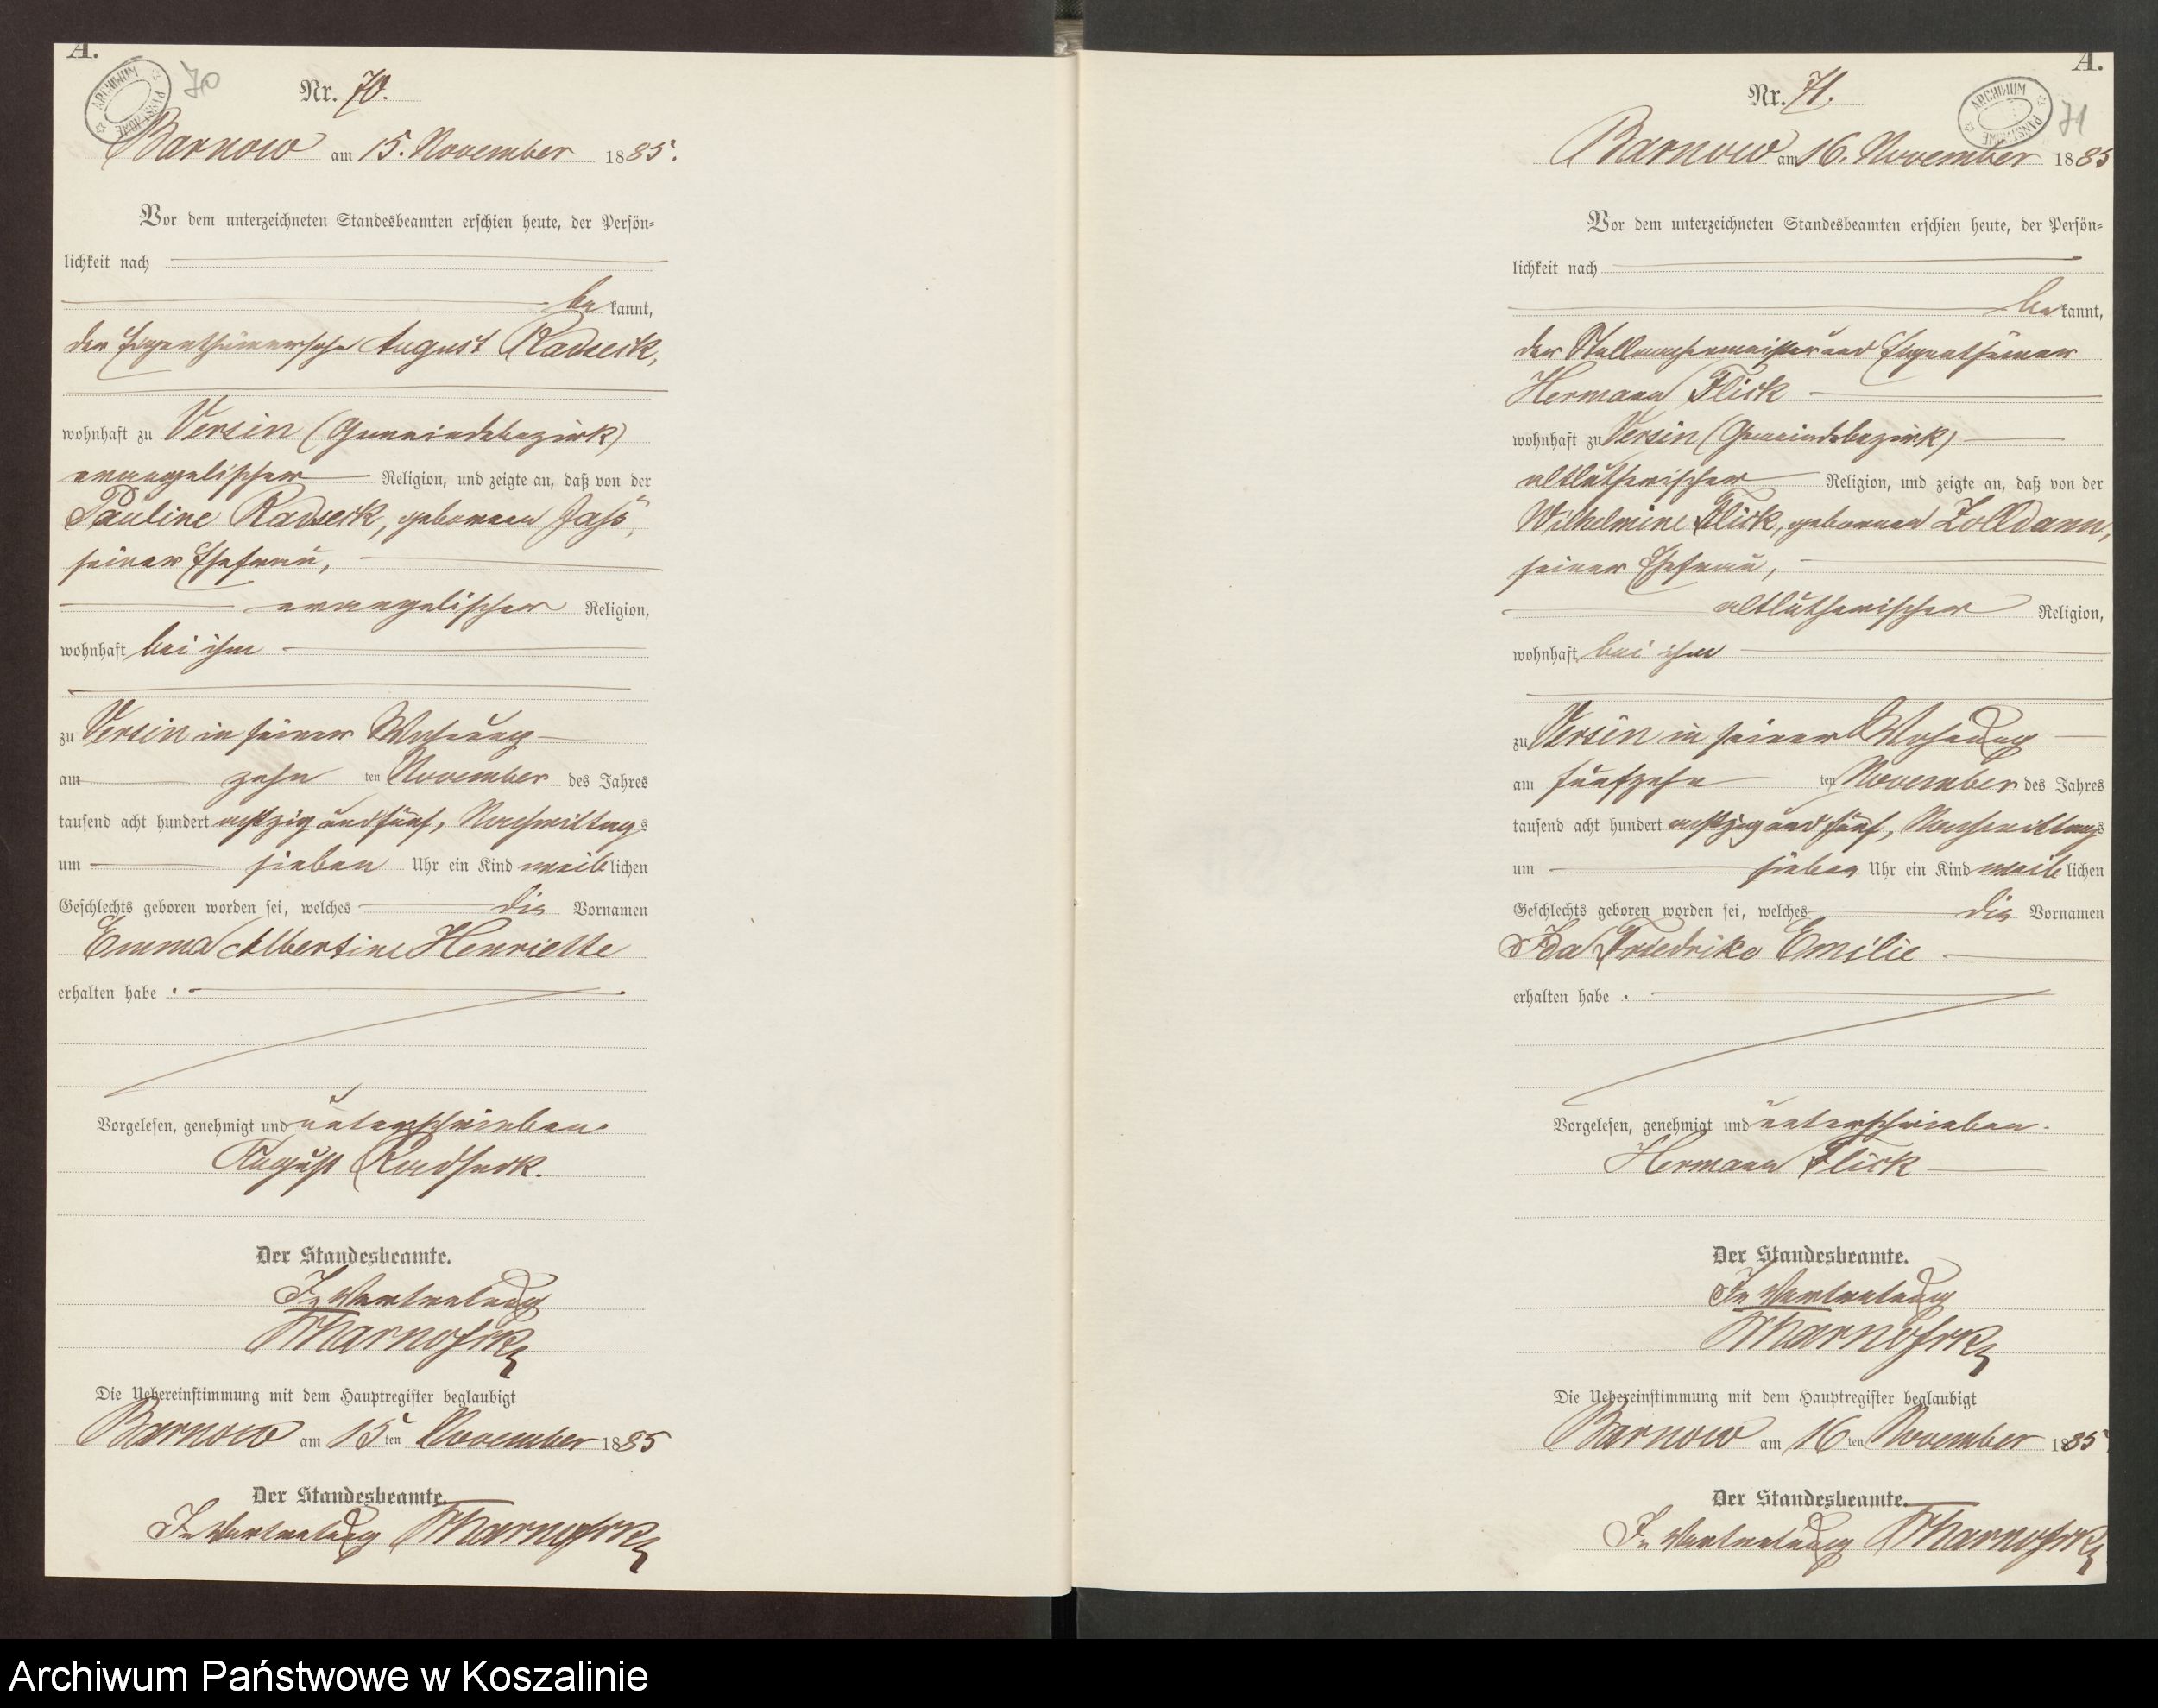 A.
ARCHIWUM PAŃSTWOWE
70
Nr. 70.
Barnow am 15. November 1885.
Vor dem unterzeichneten Standesbeamten erschien heute, der Persön-
lichkeit nach
be kannt,
der Eigenthümer August Radseck,
wohnhaft zu Versin (Gemeindebezirk)
evangelischer Religion, und zeigte an, daß von der
Pauline Radseck, geborenen Jass,
seiner Ehefrau,
evangelischer Religion,
wohnhaft bei ihm
zu Versin in seiner Wohnung
am zehn ten November des Jahres
tausend acht hundert achtzig und fünf, Nachmittags
um sieben Uhr ein Kind weiblichen
Geschlechts geboren worden sei, welches die Vornamen
Emma Albertine Henriette
erhalten habe.
Vorgelesen, genehmigt und unterschrieben.
August Radseck.
Der Standesbeamte.
In Vertretung
Die Uebereinstimmung mit dem Hauptregister beglaubigt
Barnow am 15ten November 1885
Der Standesbeamte.
In Vertretung
A.
ARCHIWUM PAŃSTWOWE
71
Nr. 71.
Barnow am 16. November 1885
Vor dem unterzeichneten Standesbeamten erschien heute, der Persön-
lichkeit nach
be kannt,
der Stellmachermeister und Eigenthümer
Hermann Flick
wohnhaft zu Versin (Gemeindebezirk)
altlutherischer Religion, und zeigte an, daß von der
Wilhelmine Flick, geborenen Zolldann,
seiner Ehefrau,
altlutherischer Religion,
wohnhaft bei ihm
zu Versin in seiner Wohnung
am fünfzehn ten November des Jahres
tausend acht hundert achtzig und fünf, Nachmittags
um sieben Uhr ein Kind weiblichen
Geschlechts geboren worden sei, welches die Vornamen
Ida Friedrike Emilie
erhalten habe.
Vorgelesen, genehmigt und unterschrieben.
Hermann Flick
Der Standesbeamte.
In Vertretung
Die Uebereinstimmung mit dem Hauptregister beglaubigt
Barnow am 16ten November 1885
Der Standesbeamte.
In Vertretung
Archiwum Państwowe w Koszalinie